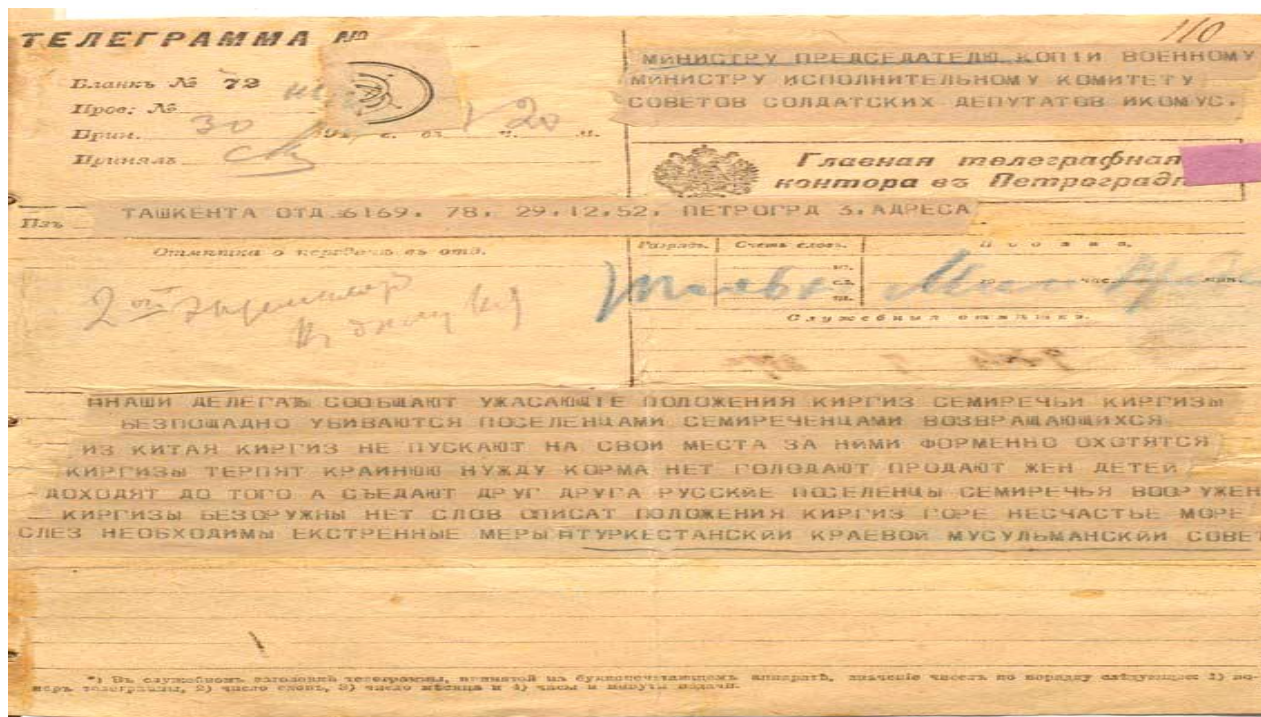 ТЕЛЕГРАММА №
110
Бланкъ № 72
Пров: №
Прин. 30 191 г. въ ч. 20 м.
Принялъ
МИНИСТРУ ПРЕДСЕДАТЕЛЮ КОПІИ ВОЕННОМУ
МИНИСТРУ ИСПОЛНИТЕЛЬНОМУ КОМИТЕТУ
СОВЕТОВ СОЛДАТСКИХ ДЕПУТАТОВ ИКОМУС.
Главная телеграфная
контора въ Петроградѣ
Изъ ТАШКЕНТА ОТД 6169. 78. 29.12,52. ПЕТРОГРД 3. АДРЕСА
Отмѣтка о передачѣ въ отд.
Разрядъ. Счетъ словъ. Подана.
2ой экземпляр
час. мин.
Служебныя отмѣтки.
ННАШИ ДЕЛЕГАТЫ СООБЩАЮТ УЖАСАЮЩІЕ ПОЛОЖЕНИЯ КИРГИЗ СЕМИРЕЧЬИ КИРГИЗЫ
БЕЗПОЩАДНО УБИВАЮТСЯ ПОСЕЛЕНЦАМИ СЕМИРЕЧЕНЦАМИ ВОЗВРАЩАЮЩИХСЯ
ИЗ КИТАЯ КИРГИЗ НЕ ПУСКАЮТ НА СВОИ МЕСТА ЗА НИМИ ФОРМЕННО ОХОТЯТСЯ
КИРГИЗЫ ТЕРПЯТ КРАИНЮЮ НУЖДУ КОРМА НЕТ ГОЛОДАЮТ ПРОДАЮТ ЖЕН ДЕТЕЙ
ДОХОДЯТ ДО ТОГО А СЪЕДАЮТ ДРУГ ДРУГА РУССКИЕ ПОСЕЛЕНЦЫ СЕМИРЕЧЬЯ ВООРУЖЕН
КИРГИЗЫ БЕЗОРУЖНЫ НЕТ СЛОВ ОПИСАТ ПОЛОЖЕНИЯ КИРГИЗ ГОРЕ НЕСЧАСТЬЕ МОРЕ
СЛЕЗ НЕОБХОДИМЫ ЕКСТРЕННЫЕ МЕРЫ НТУРКЕСТАНСКИЙ КРАЕВОЙ МУСУЛЬМАНСКИЙ СОВЕТ
*) Въ служебномъ заголовкѣ телеграммы, принятой на буквопечатающемъ аппаратѣ, значеніе чиселъ по порядку слѣдующее: 1) но-
меръ телеграммы, 2) число словъ, 3) число мѣсяца и 4) часы и минуты подачи.